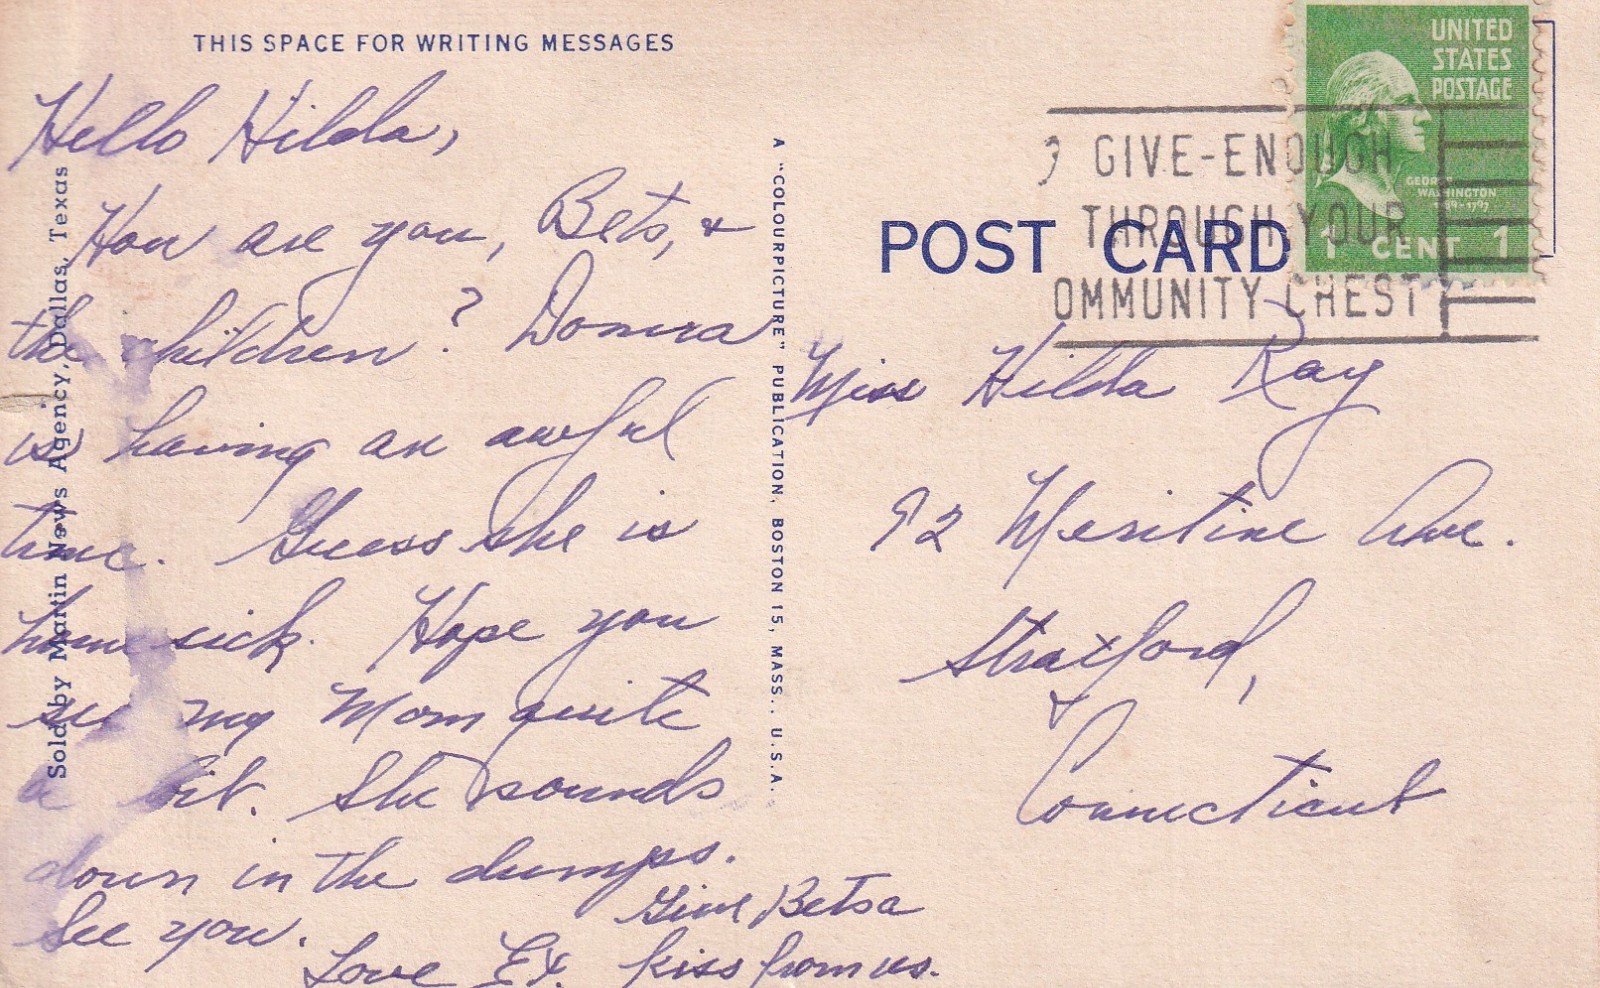 THIS SPACE FOR WRITING MESSAGES
Hello Hilda,
How are you, Bets, &
the children? Donna
is having an awful
time. Guess she is
home sick. Hope you
see my Mom quite
a bit. She sounds
down in the dumps.
See you.
Love
Give Betsa
kiss from us.
Sold by Martin News Agency, Dallas, Texas
A "COLOURPICTURE" PUBLICATION, BOSTON 15, MASS., U.S.A.
POST CARD
GIVE-ENOUGH
THROUGH YOUR
OMMUNITY CHEST
UNITED
STATES
POSTAGE
GEORGE
WASHINGTON
1789-1797
1 CENT 1
Miss Hilda Ray
92 Meritine Ave.
Stratford,
Connecticut